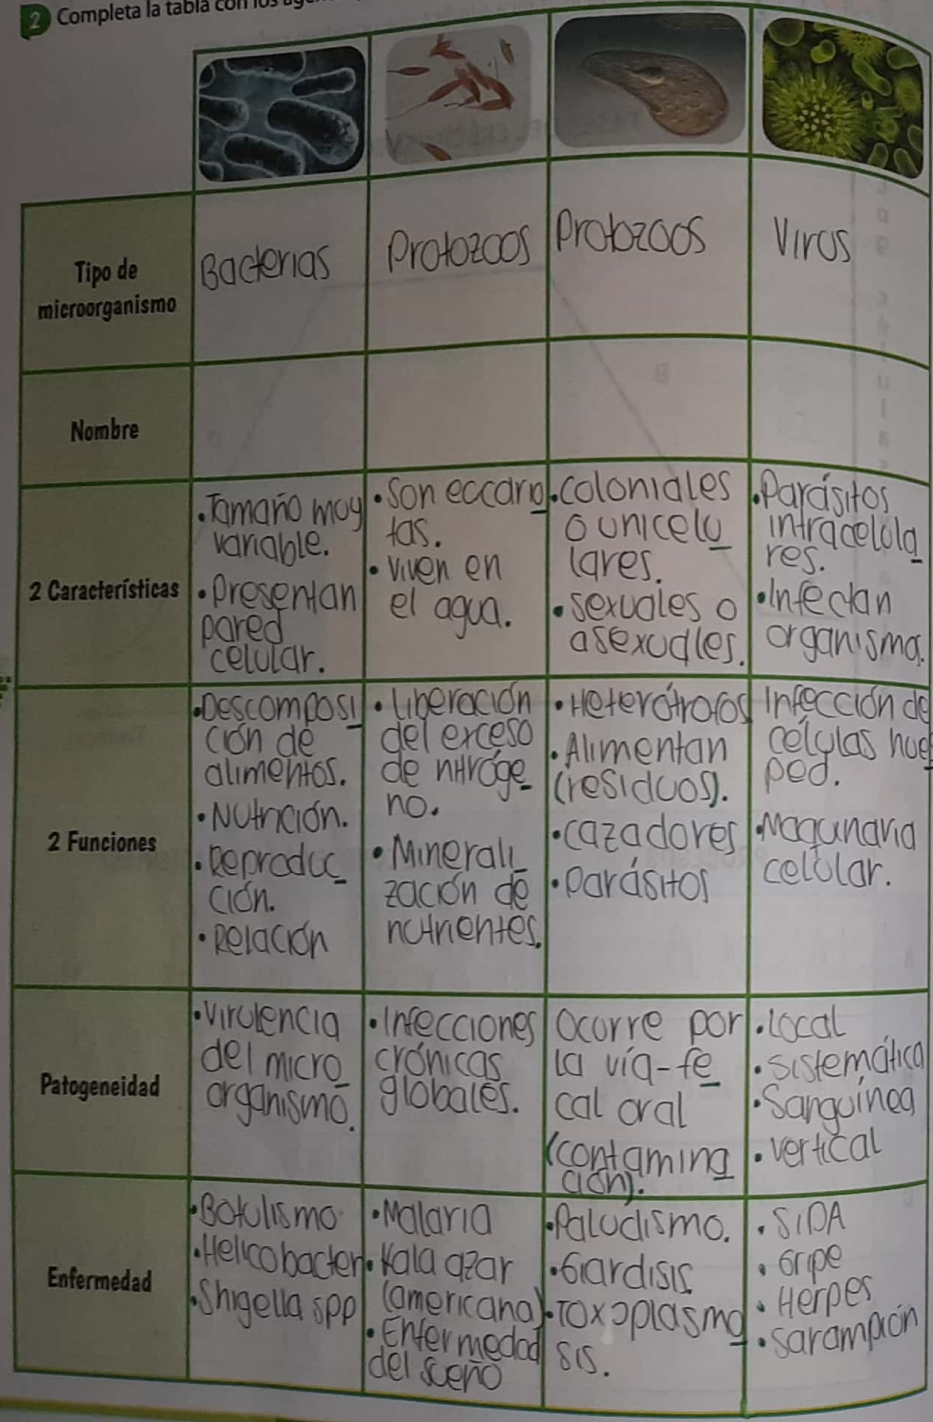 2 Completa la tabla con los
Tipo de
microorganismo
Bacterias
Protozoos
Protozoos
Virus
Nombre
2 Características
• Tamaño muy
variable.
• Presentan
pared
celular.
• Son eucario
tas.
• viven en
el agua.
• coloniales
o unicelu
lares.
• sexuales o
asexuales.
• Parásitos
intracelula
res.
• Infectan
organismo.
2 Funciones
• Descomposi
ción de
alimentos.
• Nutrición.
• Reproduc
ción.
• Relación
• Liberación
del exceso
de nitróge
no.
• Minerali
zación de
nutrientes.
• Heterótrofos
• Alimentan
(residuos).
• cazadores
• parásitos
Infección de
células hues
ped.
• Maquinaria
celular.
Patogeneidad
• Virulencia
del micro
organismo.
• Infecciones
crónicas
globales.
Ocurre por
la vía-fe
cal oral
(contamina
ción).
• Local
• Sistemática
• Sanguínea
• vertical
Enfermedad
• Botulismo
• Helicobacter
• Shigella spp
• Malaria
• Kala azar
(americana)
• Enfermedad
del sueño
• Paludismo.
• Giardisis.
• Toxoplasmo
sis.
• SIDA
• Gripe
• Herpes
• Sarampión